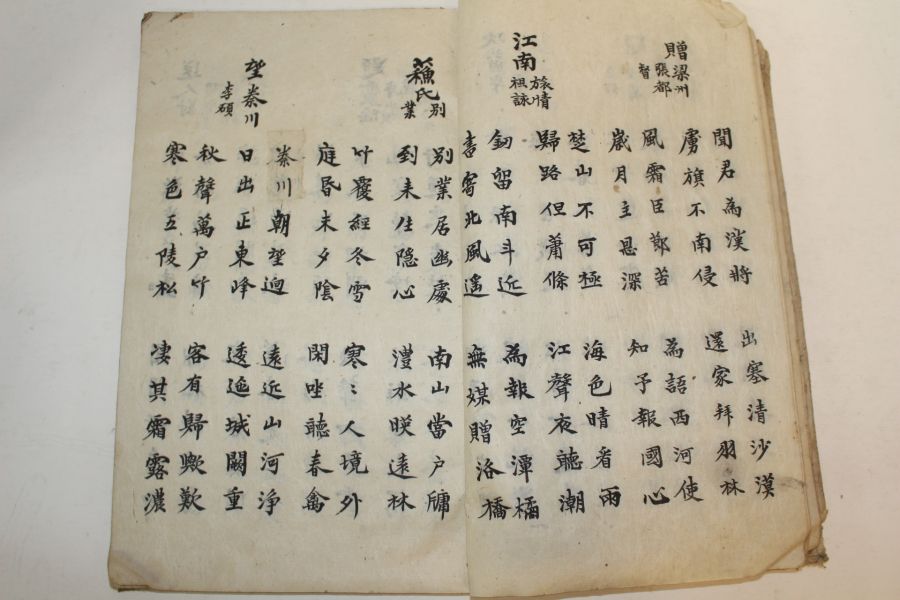 贈梁州
張都
督
聞君為漢將
虜旗不南侵
出塞清沙漠
還家拜羽林
風霜臣鄭苦
歲月主恩深
為語西河使
知予報國心
江南
旅情
祖詠
楚山不可極
歸路但蕭條
海色晴看雨
江聲夜聽潮
釰留南斗近
書寄北風遙
為報空潭橘
無媒贈洛橋
蘓氏
別
業
別業居幽處
到来生隱心
南山當户牖
澧水暎遠林
竹覆經冬雪
庭昏未夕陰
寒〻人境外
閑坐聽春禽
望秦川
李碩
秦川朝望迥
日出正東峰
遠近山河淨
逶迤城闕重
秋聲萬户竹
寒色五陵松
客有歸歟歎
凄其霜露濃